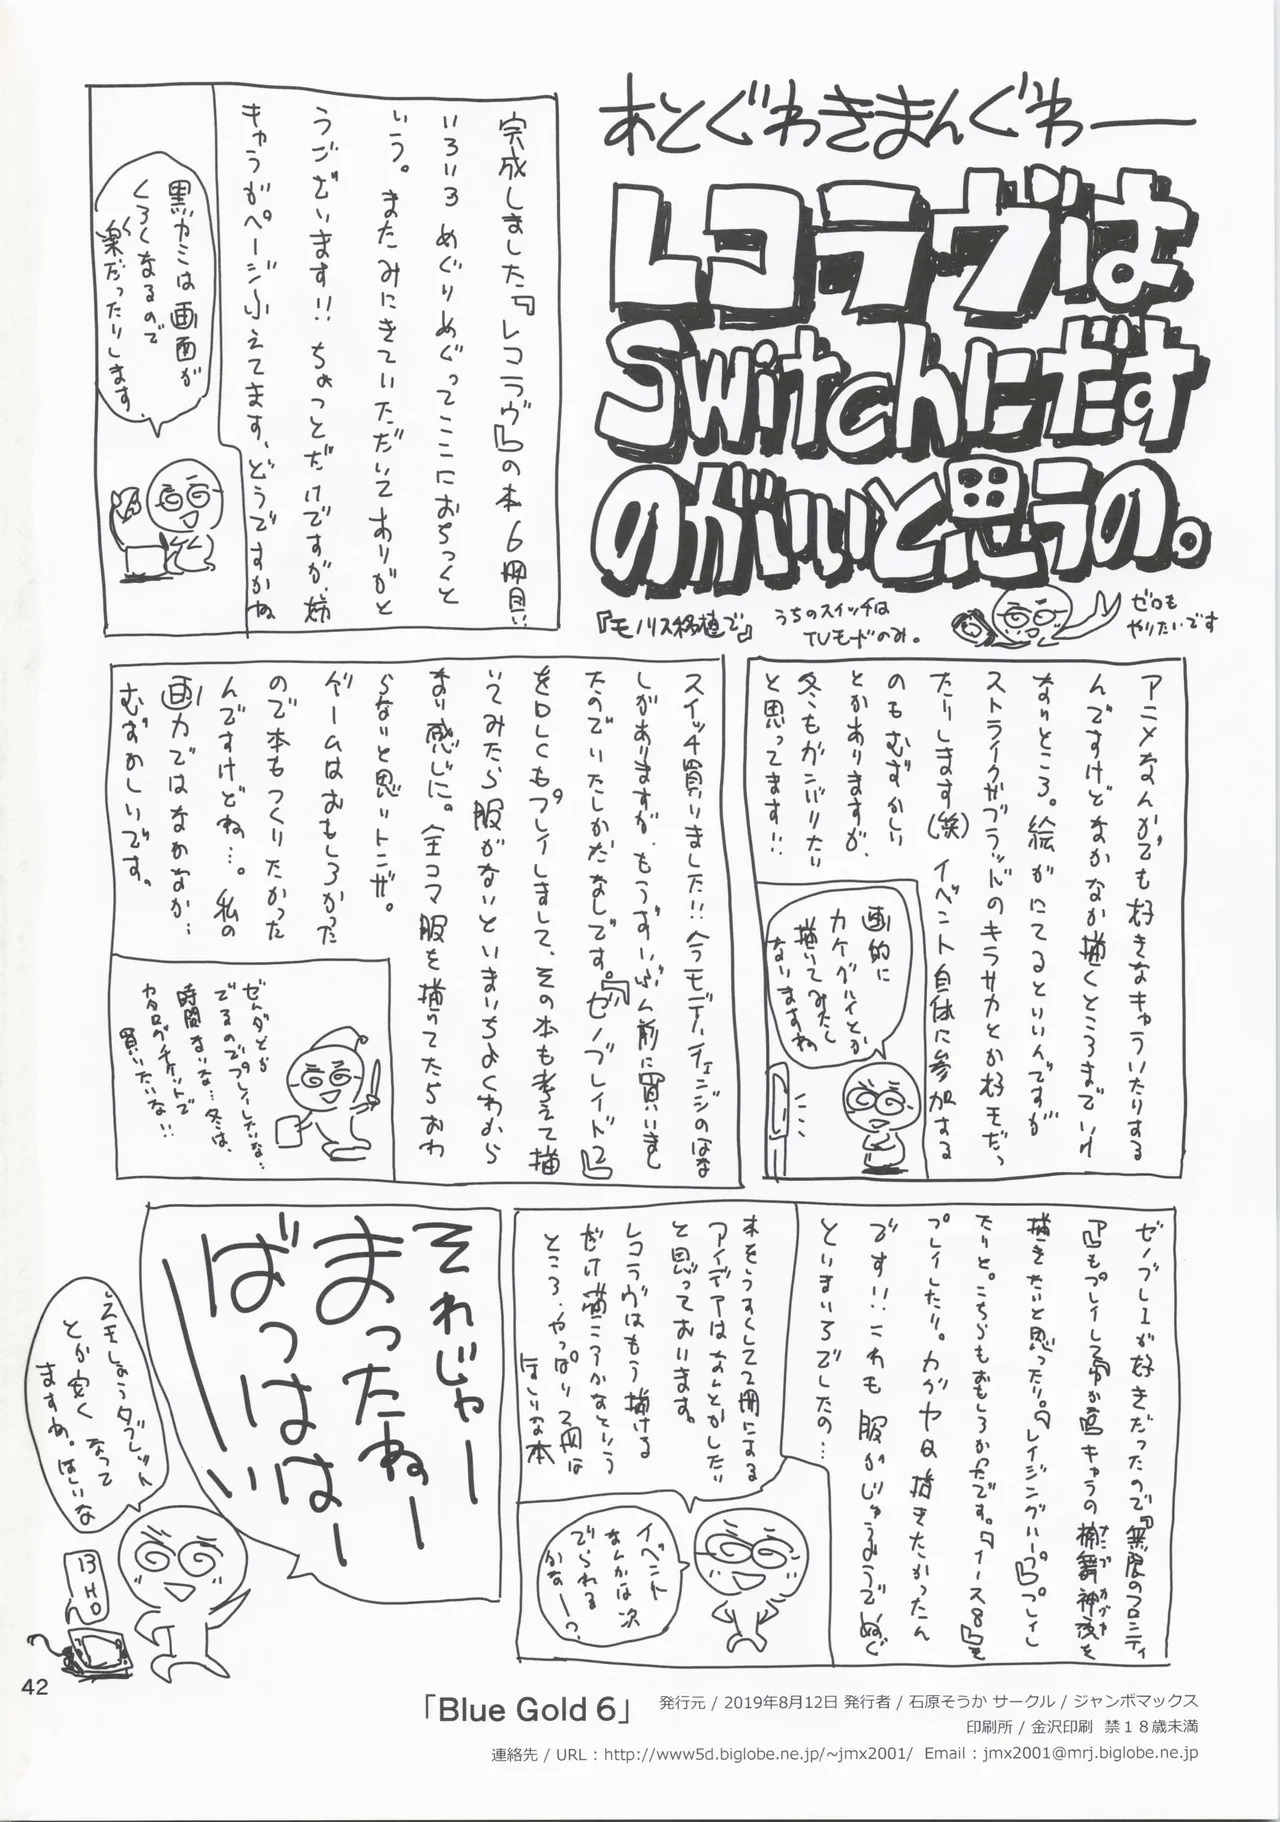 あとぐわきまんぐわー
レコラヴは
Switchにだす
のがいいと思うの。
『モノリス移植で』
うちのスイッチは
TVモードのみ。
ゼロも
やりたいです
完成しました『レコラヴ』の本6冊目い
いろいろめぐりめぐってここにおちっくと
いう。またみにきていただいてありがと
うございます!!ちょっとだけですが、姉
キャラがページふえてます、どうですかね
黒ガミは画面が
くろくなるので
楽だったりします
アニメなんかでも好きなキャラいたりする
んですけどなかなか描くところまでいけ
ないところ。絵がにてるといいんですが
ストライクザブラッドのキラサカとか好きだっ
たりします(笑)イベント自体に参加する
のもむずかしい
とかありますが、
冬もガンバりたい
と思ってます!!
画的に
カケグルイとか
描いてみたし
ないますね
スイッチ買いました!!今モデルチェンジのはな
しがありますが、もうずいぶん前に買いまし
たのでいたしかたなしです。『ゼノブレイド2』
をDLCもプレイしまして、その本も考えて描
いてみたら服がないといまいちよくわから
ない感じに。全コマ服を描いてたらおわ
らないと思いトンザ。
ゲームはおもしろかった
ので本もつくりたかった
んですけどね…。私の
画力ではなかなか…
むずかしいです。
ゼルダとか
でるのでプレイしたいな…
時間ないな…冬は、
カタログチケットで
買いたいな!!
ゼノブレ1が好きだったので『無限のフロンティ
ア』もプレイして『ゆか宮キャラの楠舞神夜を
描きたいと思ったり。『レイジングループ』プレイし
たりと。こちらもおもしろかったです。『イース8』を
プレイしたり。カグヤは描きたかったん
ですが!!これも服がじゅうようでぬぐ
といまいちでしたの…
本をうすくして2冊にする
アイデアはなんとかしたい
と思っております。
レコラヴはもう描ける
だけ描こうかなという
ところ、やっぱり2冊は
ほしいな本
イベント
なんかは次
でられる
かなー?
それじゃー
まったねー
ばっはは
ーい
とか安くなって
ますね。ほしいな
13HD
42
「Blue Gold 6」
発行元 / 2019年8月12日 発行者 / 石原そうか サークル / ジャンボマックス
印刷所 / 金沢印刷 禁18歳未満
連絡先 / URL : http://www5d.biglobe.ne.jp/~jmx2001/ Email : jmx2001@mrj.biglobe.ne.jp